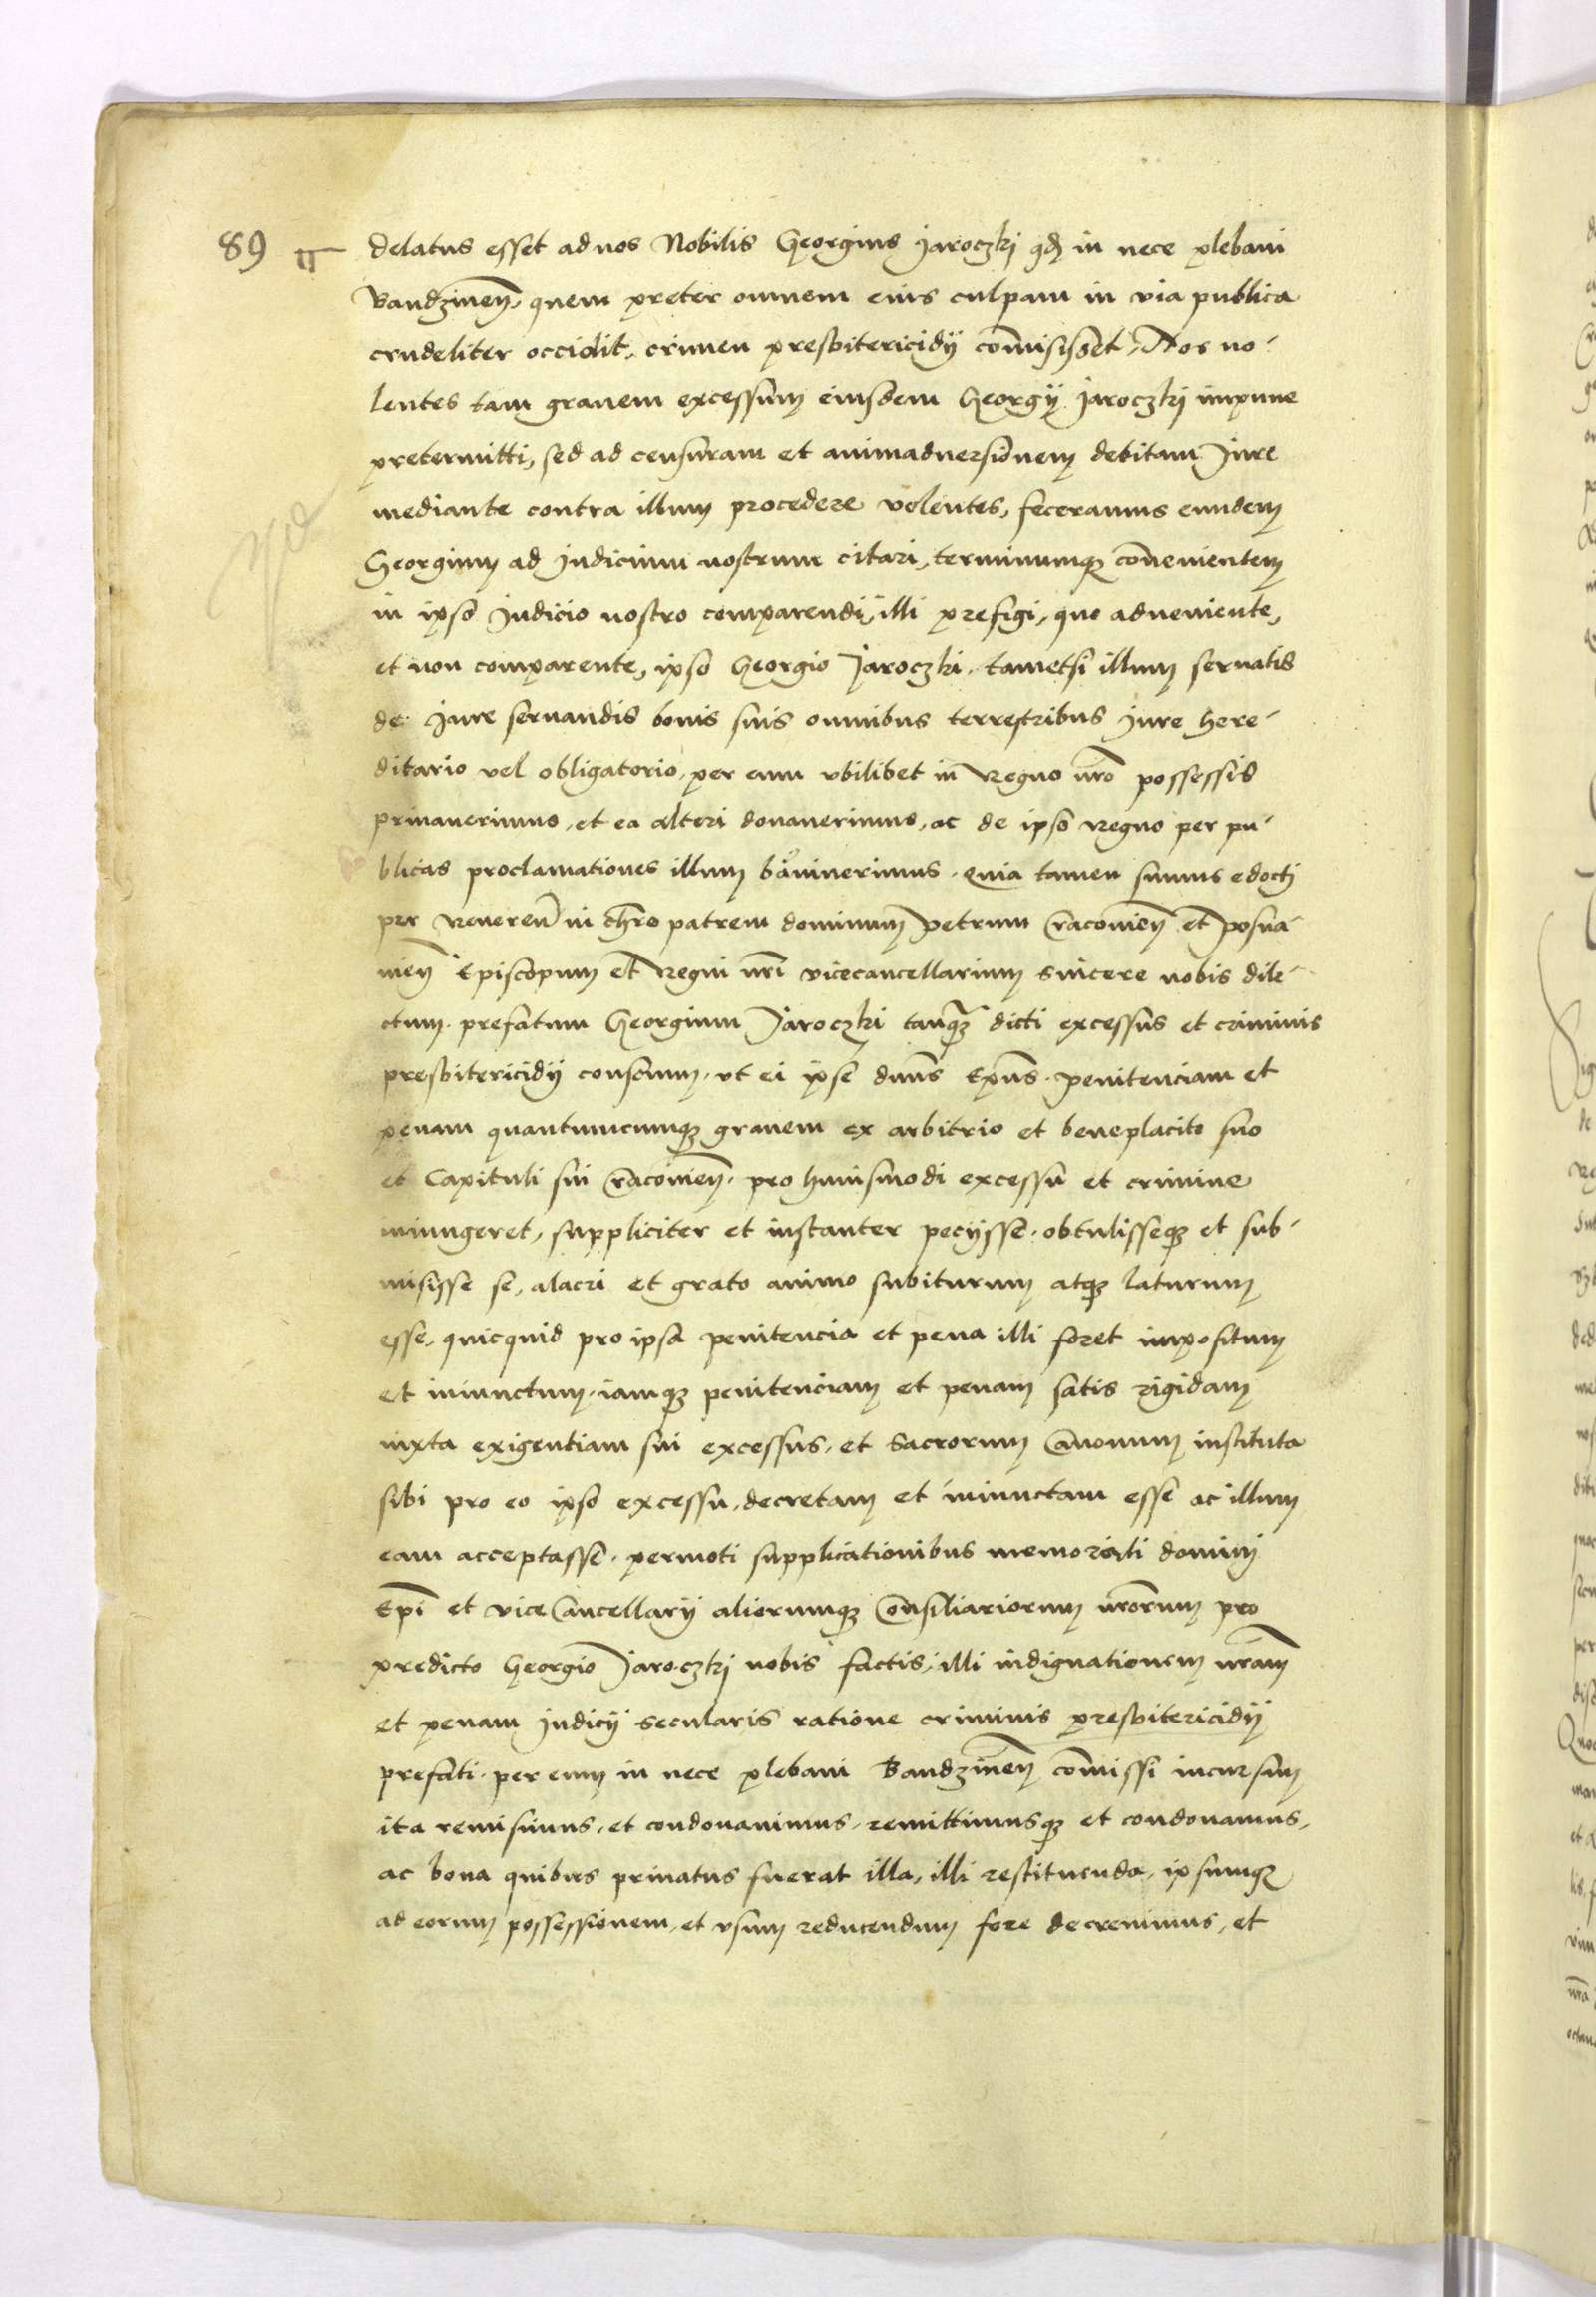 89 delatus esset ad nos Nobilis Georgius Jaroczkj qđ in nece plebani
Bandzineñ, quem preter omnem eius culpam in via publica
crudeliter occidit, crimen presbitericidÿ com̄isisset, Nos no-
lentes tam grauem excessum eiusdem Georgÿ Jaroczkj impune
pretermitti, sed ad censuram et animaduersionem debitam Jure
mediante contra illum procedere volentes, feceramus eundem
Georgium ad Judicium nostrum citari, terminumqȝ conuenientem
in ipso Judicio nostro comparendi, illi prefigi, quo adueniente,
et non comparente, ipso Georgio Jaroczki, tametsi illum seruatis
de Jure seruandis bonis suis omnibus terrestribus Jure here-
ditario vel obligatorio, per eum vbilibet in Regno nr̄o possessis
priuauerimus, et ea alteri donauerimus, ac de ipso Regno per pu-
blicas proclamationes illum banniuerimus. Quia tamen sumus edocti
per Reueren̄ in chr̄o patrem dominum Petrum Cracouien̄ et Posna-
nien̄ Episcopum et Regni nr̄i vicecancellarium sincere nobis dile-
ctum. prefatum Georgium Jaroczki tanqȝ dicti excessus et criminis
presbitericidÿ conscium, vt ei ipse dn̄us Ep̄us. penitenciam et
penam quantumcumqȝ grauem ex arbitrio et beneplacito suo
et Capituli sui Cracouien̄. pro huiusmodi excessu et crimine
iniungeret, suppliciter et instanter pecÿsse, obtulisseqȝ et sub-
misisse se, alacri et grato animo subiturum atqȝ laturum
esse, quicquid pro ipsa penitencia et pena illi foret impositum
et iniunctum, iamqȝ penitenciam et penam satis rigidam
iuxta exigentiam sui excessus, et Sacrorum Canonum instituta
sibi pro eo ipso excessu, decretam et iniunctam esse ac illum
eam acceptasse. permoti supplicationibus memorati domini
Ep̄i et viceCancellarÿ aliorumqȝ Consiliariorum nr̄orum pro
predicto Georgio Jaroczkj nobis factis, illi indignationem nr̄am
et penam Judicÿ secularis ratione criminis presbitericidÿ
prefati. per eum in nece plebani Bandzinen̄ com̄issi incursam
ita remisimus, et condonauimus, remittimusqȝ et condonamus,
ac bona quibus priuatus fuerat illa, illi restituenda, ipsumqȝ
ad eorum possessionem, et vsum reducendum fore decreuimus, et